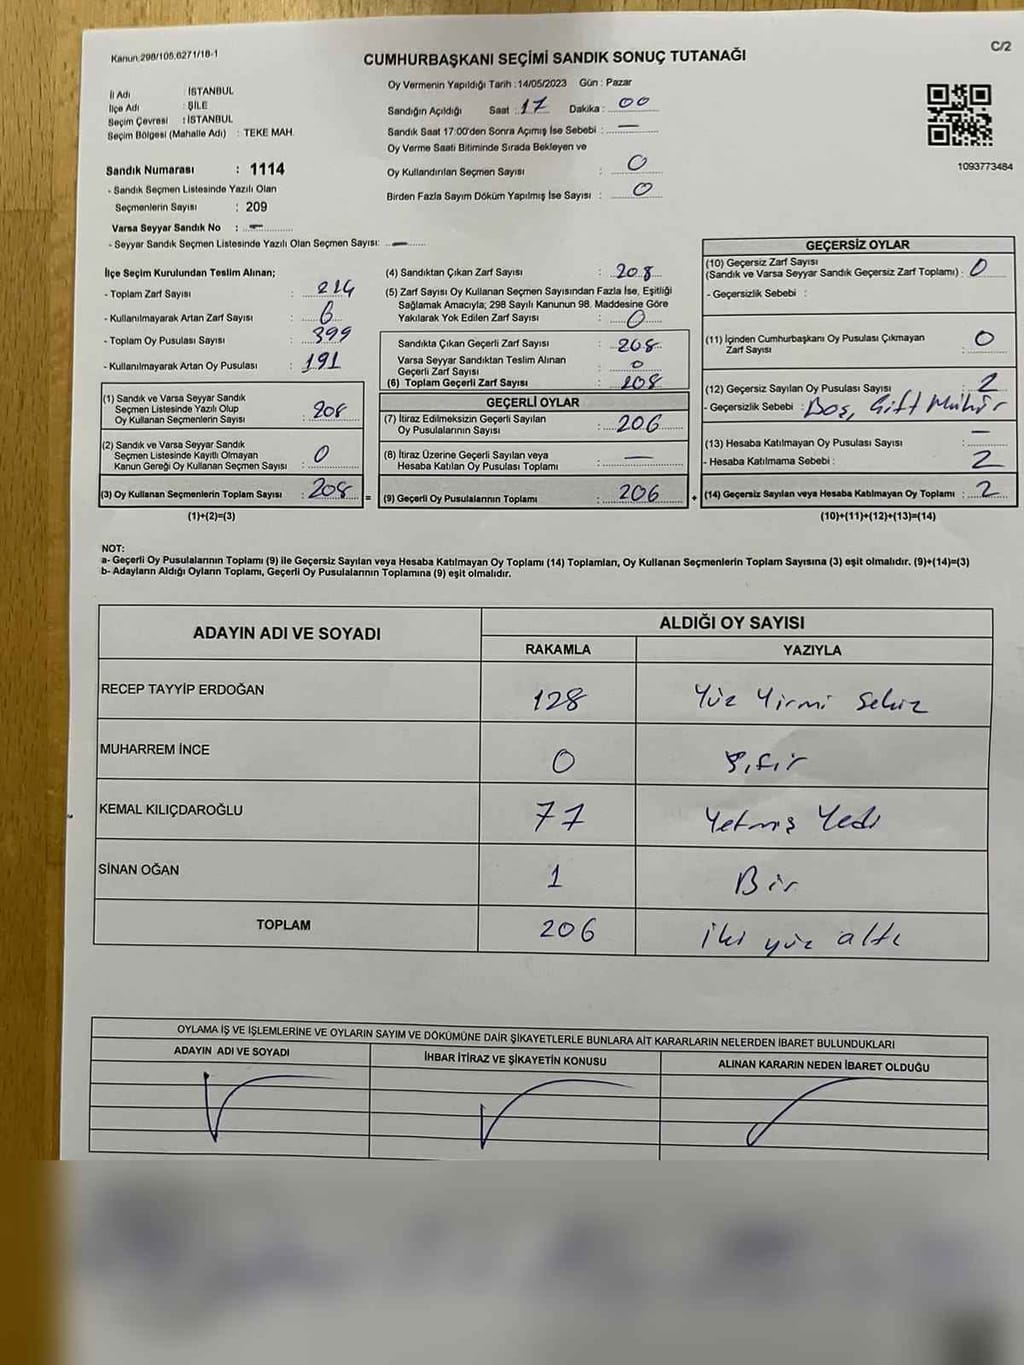 Kanun 298/105,6271/18-1
C/2
CUMHURBAŞKANI SEÇİMİ SANDIK SONUÇ TUTANAĞI
Oy Vermenin Yapıldığı Tarih : 14/05/2023 Gün : Pazar
İl Adı : İSTANBUL
İlçe Adı : ŞİLE
Seçim Çevresi : İSTANBUL
Seçim Bölgesi (Mahalle Adı) : TEKE MAH.
Sandığın Açıldığı Saat : 17 Dakika : 00
Sandık Saat 17:00'den Sonra Açımış İse Sebebi : —
Oy Verme Saati Bitiminde Sırada Bekleyen ve
Oy Kullandırılan Seçmen Sayısı : 0
Birden Fazla Sayım Döküm Yapılmış İse Sayısı : 0
1093773484
Sandık Numarası : 1114
- Sandık Seçmen Listesinde Yazılı Olan
Seçmenlerin Sayısı : 209
Varsa Seyyar Sandık No : —
- Seyyar Sandık Seçmen Listesinde Yazılı Olan Seçmen Sayısı: —
İlçe Seçim Kurulundan Teslim Alınan;
- Toplam Zarf Sayısı : 214
- Kullanılmayarak Artan Zarf Sayısı : 6
- Toplam Oy Pusulası Sayısı : 399
- Kullanılmayarak Artan Oy Pusulası : 191
(1) Sandık ve Varsa Seyyar Sandık
Seçmen Listesinde Yazılı Olup
Oy Kullanan Seçmenlerin Sayısı : 208
(2) Sandık ve Varsa Seyyar Sandık
Seçmen Listesinde Kayıtlı Olmayan
Kanun Gereği Oy Kullanan Seçmen Sayısı : 0
(3) Oy Kullanan Seçmenlerin Toplam Sayısı : 208
(1)+(2)=(3)
(4) Sandıktan Çıkan Zarf Sayısı : 208
(5) Zarf Sayısı Oy Kullanan Seçmen Sayısından Fazla İse, Eşitliği
Sağlamak Amacıyla; 298 Sayılı Kanunun 98. Maddesine Göre
Yakılarak Yok Edilen Zarf Sayısı : 0
Sandıkta Çıkan Geçerli Zarf Sayısı : 208
Varsa Seyyar Sandıktan Teslim Alınan
Geçerli Zarf Sayısı : 0
(6) Toplam Geçerli Zarf Sayısı : 208
GEÇERLİ OYLAR
(7) İtiraz Edilmeksizin Geçerli Sayılan
Oy Pusulalarının Sayısı : 206
(8) İtiraz Üzerine Geçerli Sayılan veya
Hesaba Katılan Oy Pusulası Toplamı : —
= (9) Geçerli Oy Pusulalarının Toplamı : 206
GEÇERSİZ OYLAR
(10) Geçersiz Zarf Sayısı
(Sandık ve Varsa Seyyar Sandık Geçersiz Zarf Toplamı) : 0
- Geçersizlik Sebebi :
(11) İçinden Cumhurbaşkanı Oy Pusulası Çıkmayan
Zarf Sayısı : 0
(12) Geçersiz Sayılan Oy Pusulası Sayısı : 2
- Geçersizlik Sebebi : Boş, Çift Mühür
(13) Hesaba Katılmayan Oy Pusulası Sayısı : —
- Hesaba Katılmama Sebebi : 2
+ (14) Geçersiz Sayılan veya Hesaba Katılmayan Oy Toplamı : 2
(10)+(11)+(12)+(13)=(14)
NOT:
a- Geçerli Oy Pusulalarının Toplamı (9) ile Geçersiz Sayılan veya Hesaba Katılmayan Oy Toplamı (14) Toplamları, Oy Kullanan Seçmenlerin Toplam Sayısına (3) eşit olmalıdır. (9)+(14)=(3)
b- Adayların Aldığı Oyların Toplamı, Geçerli Oy Pusulalarının Toplamına (9) eşit olmalıdır.
ADAYIN ADI VE SOYADI
ALDIĞI OY SAYISI
RAKAMLA YAZIYLA
RECEP TAYYİP ERDOĞAN 128 Yüz Yirmi Sekiz
MUHARREM İNCE 0 Sıfır
KEMAL KILIÇDAROĞLU 77 Yetmiş Yedi
SİNAN OĞAN 1 Bir
TOPLAM 206 İki yüz altı
OYLAMA İŞ VE İŞLEMLERİNE VE OYLARIN SAYIM VE DÖKÜMÜNE DAİR ŞİKAYETLERLE BUNLARA AİT KARARLARIN NELERDEN İBARET BULUNDUKLARI
ADAYIN ADI VE SOYADI
İHBAR İTİRAZ VE ŞİKAYETİN KONUSU
ALINAN KARARIN NEDEN İBARET OLDUĞU